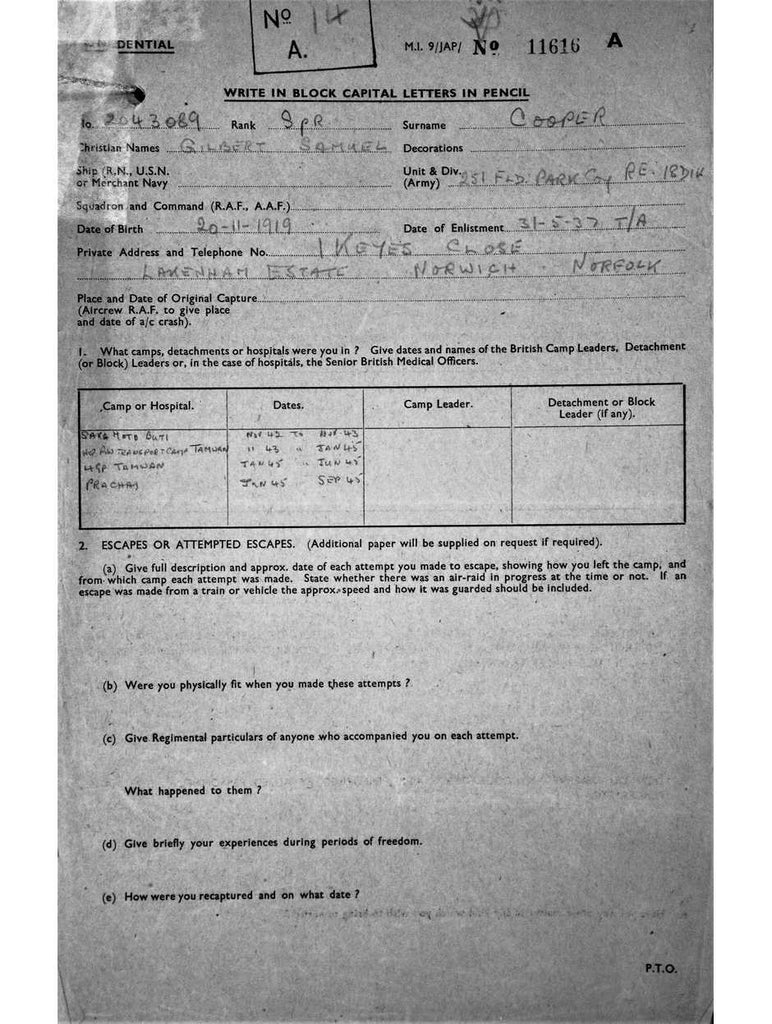 No 14
A.
DENTIAL
M.I. 9/JAP/ No 11616 A
WRITE IN BLOCK CAPITAL LETTERS IN PENCIL
No. 2043089 Rank SpR Surname COOPER
Christian Names GILBERT SAMUEL Decorations
Ship (R.N., U.S.N. or Merchant Navy
Unit & Div. (Army) 251 FLD. PARK Coy RE. 18 DIV
Squadron and Command (R.A.F., A.A.F.)
Date of Birth 20-11-1919 Date of Enlistment 31-5-37 T/A
Private Address and Telephone No. 1 KEYES CLOSE
LAKENHAM ESTATE NORWICH NORFOLK
Place and Date of Original Capture
(Aircrew R.A.F. to give place
and date of a/c crash).
1. What camps, detachments or hospitals were you in ? Give dates and names of the British Camp Leaders, Detachment
(or Block) Leaders or, in the case of hospitals, the Senior British Medical Officers.
Camp or Hospital. Dates. Camp Leader. Detachment or Block Leader (if any).
SAKAMOTO BUTI 42 TO 43
TRANSPORT CAMP TAMWAN " 43 " JAN 45
TAMWAN JAN 45 " JUN 45
PRACHAI JUN 45 SEP 45
2. ESCAPES OR ATTEMPTED ESCAPES. (Additional paper will be supplied on request if required).
(a) Give full description and approx. date of each attempt you made to escape, showing how you left the camp, and
from which camp each attempt was made. State whether there was an air-raid in progress at the time or not. If an
escape was made from a train or vehicle the approx. speed and how it was guarded should be included.
(b) Were you physically fit when you made these attempts ?
(c) Give Regimental particulars of anyone who accompanied you on each attempt.
What happened to them ?
(d) Give briefly your experiences during periods of freedom.
(e) How were you recaptured and on what date ?
P.T.O.